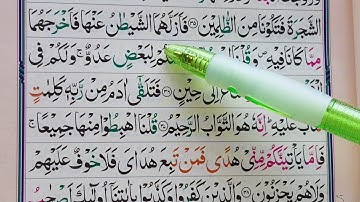 الشَّجَرَةَ فَتَكُوْنَا مِنَ الظّٰلِمِيْنَ ﴿٣٥﴾ فَاَزَلَّهُمَا الشَّيْطٰنُ عَنْهَا فَاَخْرَجَهُمَا
مِمَّا كَانَا فِيْهِ ۪ وَقُلْنَا لِبَعْضٍ عَدُوٌّ ۚ وَلَكُمْ فِى
اِلٰى حِيْنٍ ﴿٣٦﴾ فَتَلَقّٰٓى اٰدَمُ مِنْ رَّبِّهٖ كَلِمٰتٍ
فَتَابَ عَلَيْهِ ؕ اِنَّهٗ هُوَ التَّوَّابُ الرَّحِيْمُ ﴿٣٧﴾ قُلْنَا اهْبِطُوْا مِنْهَا جَمِيْعًا ۚ
فَاِمَّا يَاْتِيَنَّكُمْ مِّنِّىْ هُدًى فَمَنْ تَبِعَ هُدَاىَ فَلَا خَوْفٌ عَلَيْهِمْ
وَلَا هُمْ يَحْزَنُوْنَ ﴿٣٨﴾ وَالَّذِيْنَ كَفَرُوْا وَكَذَّبُوْا بِاٰيٰتِنَآ اُولٰٓئِكَ اَصْحٰبُ